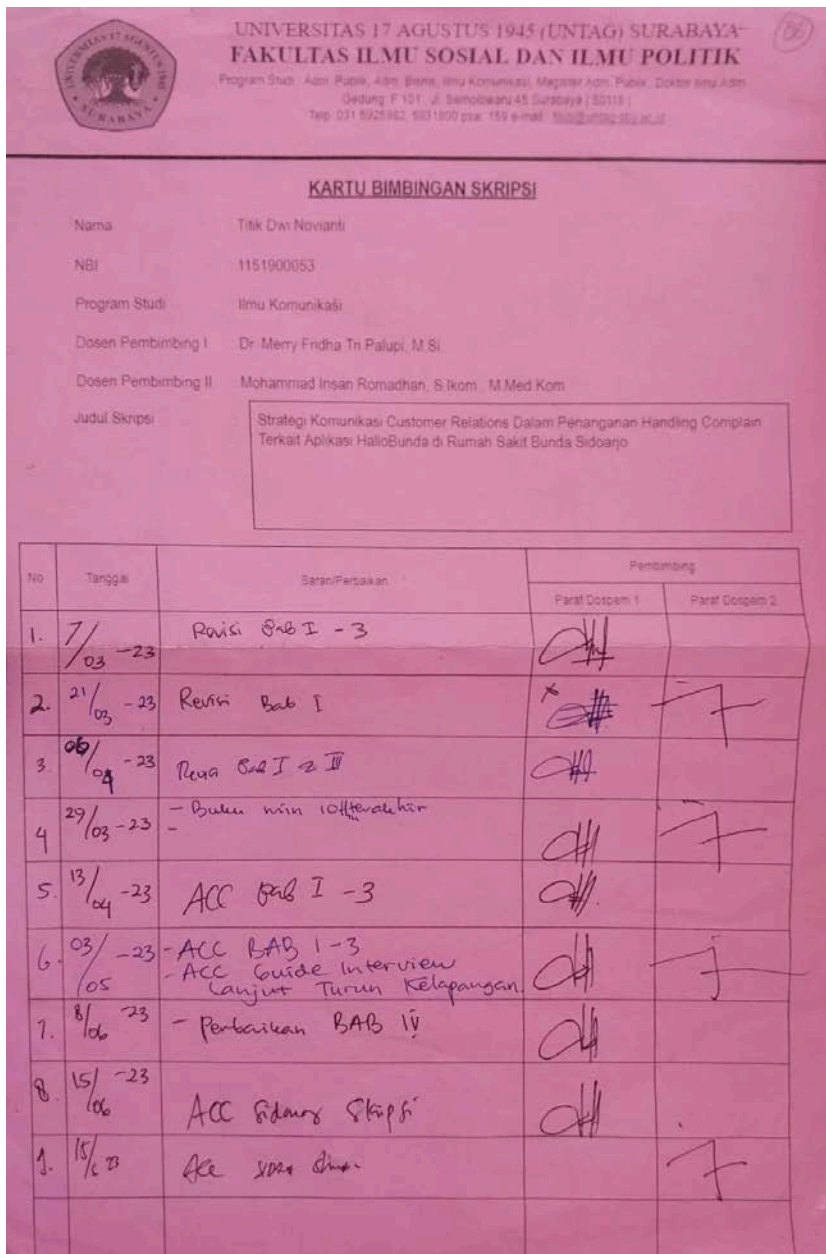 UNIVERSITAS 17 AGUSTUS 1945 (UNTAG) SURABAYA
FAKULTAS ILMU SOSIAL DAN ILMU POLITIK
Program Studi : Adm. Publik, Adm. Bisnis, Ilmu Komunikasi, Magister Adm. Publik, Doktor Ilmu Adm.
Gedung F 101, Jl. Semolowaru 45 Surabaya ( 60118 )
Telp. 031 5925982, 5931800 psw. 159 e-mail :
UNIVERSITAS 17 AGUSTUS 1945
SURABAYA
KARTU BIMBINGAN SKRIPSI
Nama Titik Dwi Novianti
NBI 1151900053
Program Studi Ilmu Komunikasi
Dosen Pembimbing I Dr. Merry Fridha Tri Palupi, M.Si
Dosen Pembimbing II Mohammad Insan Romadhan, S.Ikom., M.Med.Kom
Judul Skripsi Strategi Komunikasi Customer Relations Dalam Penanganan Handling Complain
Terkait Aplikasi HalloBunda di Rumah Sakit Bunda Sidoarjo
No Tanggal Saran/Perbaikan Pembimbing
Paraf Dospem 1 Paraf Dospem 2
1. 7/03 -23 Revisi Bab I - 3
2. 21/03 - 23 Revisi Bab I
3. 06/04 - 23 Bab I
4 29/03 - 23 - Buku min 10 terakhir
-
5. 13/04 -23 ACC Bab I - 3
6. 03/05 -23 - ACC BAB 1-3
- ACC Guide Interview
Lanjut Turun Kelapangan.
7. 8/06 23 - Perbaikan BAB IV
8. 15/06 -23 ACC Sidang Skripsi
9. 15/6 23 Acc